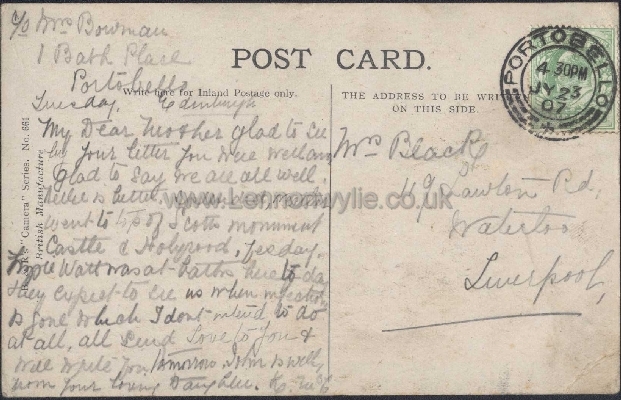 c/o Mrs Bowman
1 Bath Place
Portobello
Tuesday. Edinburgh
POST CARD.
Write here for Inland Postage only.
THE ADDRESS TO BE WRITTEN
ON THIS SIDE.
"Camera" Series. No. 661
British Manufacture
My Dear Mother glad to see
by your letter you were well and
glad to say we are all well.
is better
went to top of Scotts monument
Castle & Holyrood, yesday.
Watt was at Baths here to day
they expect to see us when
is gone which I dont intend to do
at all, all send Love to you &
will write you tomorrow. John is well
from your loving Daughter.
Mrs Black
Lawton Rd,
Waterloo
Liverpool,
PORTOBELLO
4.30PM
JY 23
07
www.Lennoxwylie.co.uk